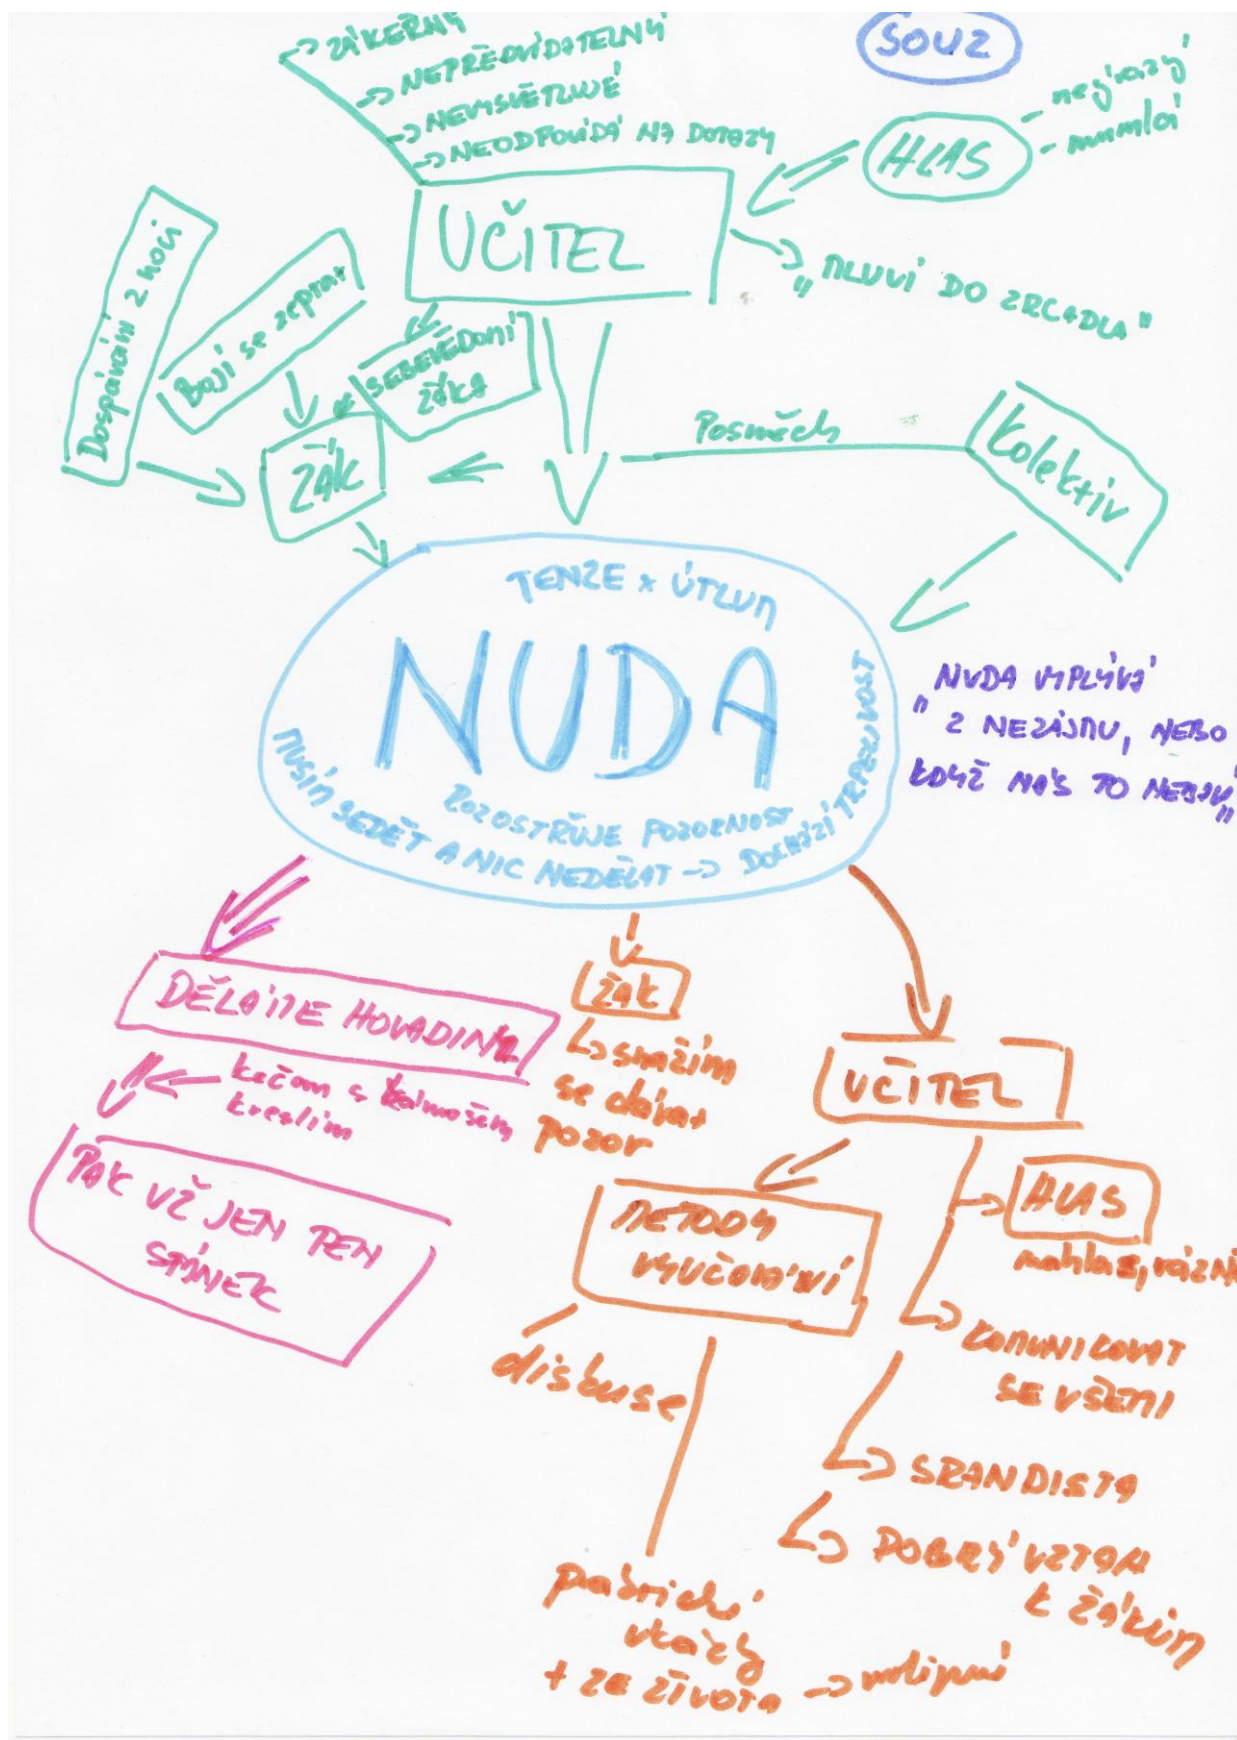 SOUZ
→ ZÁKEŘNÝ
→ NEPŘEDVÍDATELNÝ
→ NEVYSVĚTLUJE
→ NEODPOVÍDÁ NA DOTAZY
HLAS
- nevýrazný
- mumlá
UČITEL
„MLUVÍ DO ZRCADLA"
Dospávání z noci
Bojí se zeptat
SEBEVĚDOMÍ
ŽÁKA
ŽÁK
Posměch
Kolektiv
TENZE x ÚTLUM
NUDA
ROZOSTŘUJE POZORNOST
MUSÍM SEDĚT A NIC NEDĚLAT → DOCHÁZÍ TRPĚLIVOST
„NUDA VYPLÝVÁ
Z NEZÁJMU, NEBO
KDYŽ NÁS TO NEBAVÍ"
DĚLÁME HOVADINY
kecám s kámošem
kreslím
PAK UŽ JEN TEN
SPÁNEK
ŽÁK
↳ snažím
se dávat
pozor
UČITEL
METODY
VYUČOVÁNÍ
diskuse
HLAS
nahlas, rázně
KOMUNIKOVAT
SE VŠEMI
SRANDISTA
DOBRÝ VZTAH
K ŽÁKŮM
ukázky
+ ZE ŽIVOTA →